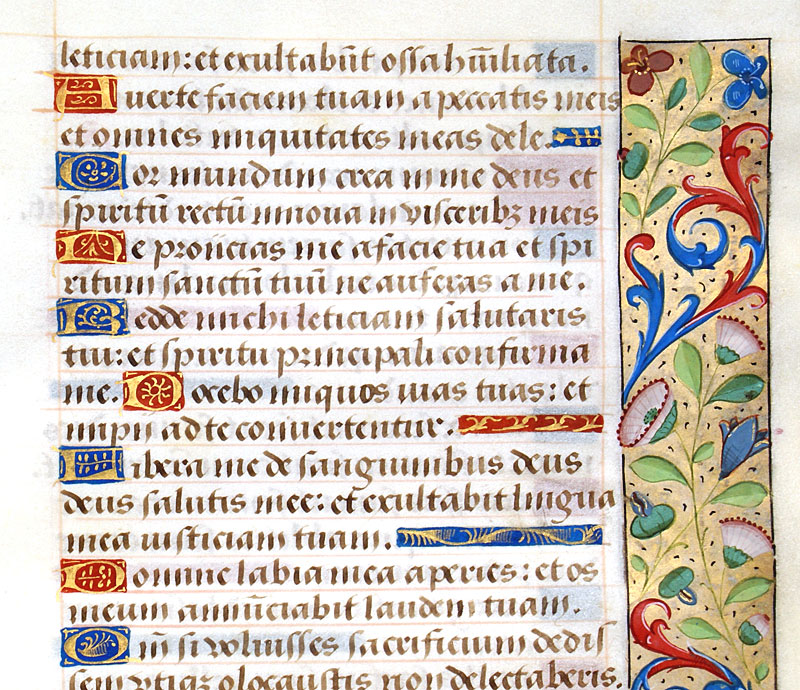 leticiam: et exultabūt ossa hūiliata.
Auerte faciem tuam a peccatis meis
et omnes iniquitates meas dele.
Cor mundum crea in me deus et
spiritū rectū innoua in visceribꝫ meis
Ne proiicias me a facie tua et spi
ritum sanctū tuū ne auferas a me.
Redde michi leticiam salutaris
tui: et spiritu principali confirma
me. Docebo iniquos vias tuas: et
impii ad te conuertentur.
Libera me de sanguinibus deus
deus salutis mee: et exultabit lingua
mea iusticiam tuam.
Domine labia mea aperies: et os
meum annūciabit laudem tuam.
Qm̄ si voluisses sacrificium dedis
sem vtiqꝫ olocaustis non delectaberis.